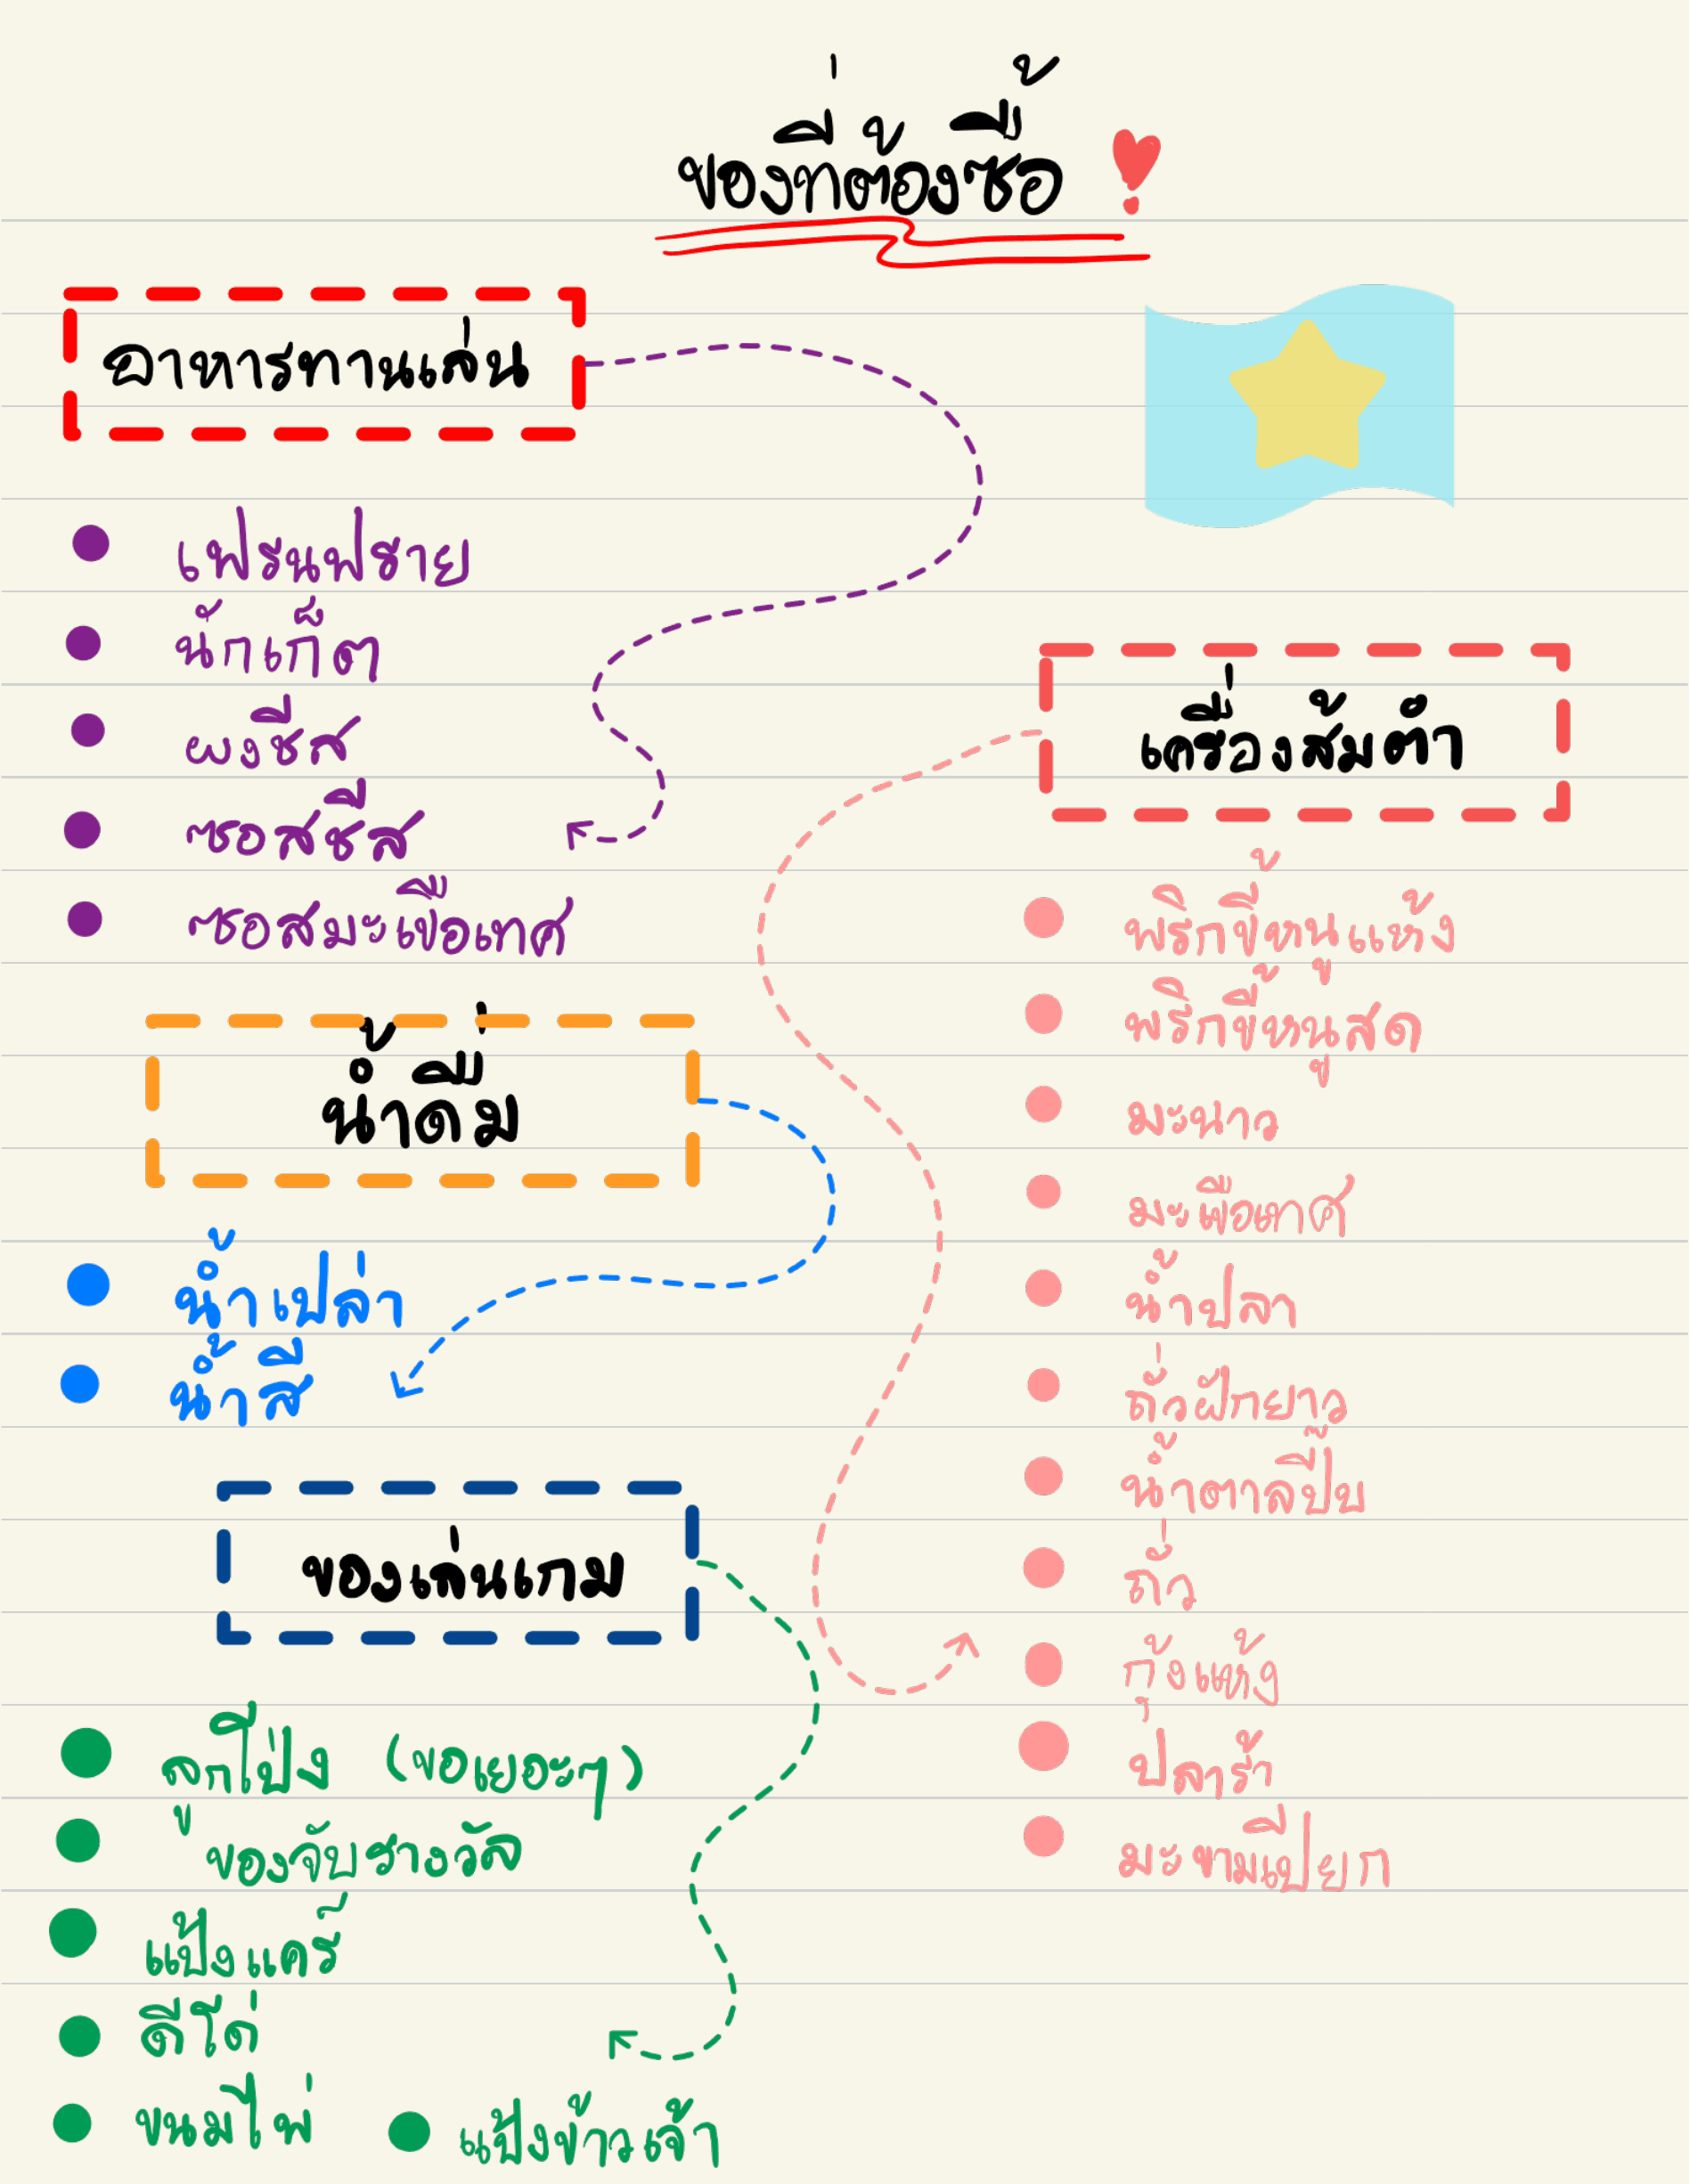 ของที่ต้องซื้อ
อาหารทานเล่น
เฟรนฟราย
นักเก็ต
ผงชีส
ซอสชีส
ซอสมะเขือเทศ
น้ำดื่ม
น้ำเปล่า
น้ำสี
ของเล่นเกม
ลูกโป่ง (ขอเยอะๆ)
ของจับรางวัล
แป้งแคร์
ดีโด่
ขนมไพ่
แป้งข้าวเจ้า
เครื่องส้มตำ
พริกขี้หนูแห้ง
พริกขี้หนูสด
มะนาว
มะเขือเทศ
น้ำปลา
ถั่วฝักยาว
น้ำตาลปี๊บ
ถั่ว
กุ้งแห้ง
ปลาร้า
มะขามเปียก